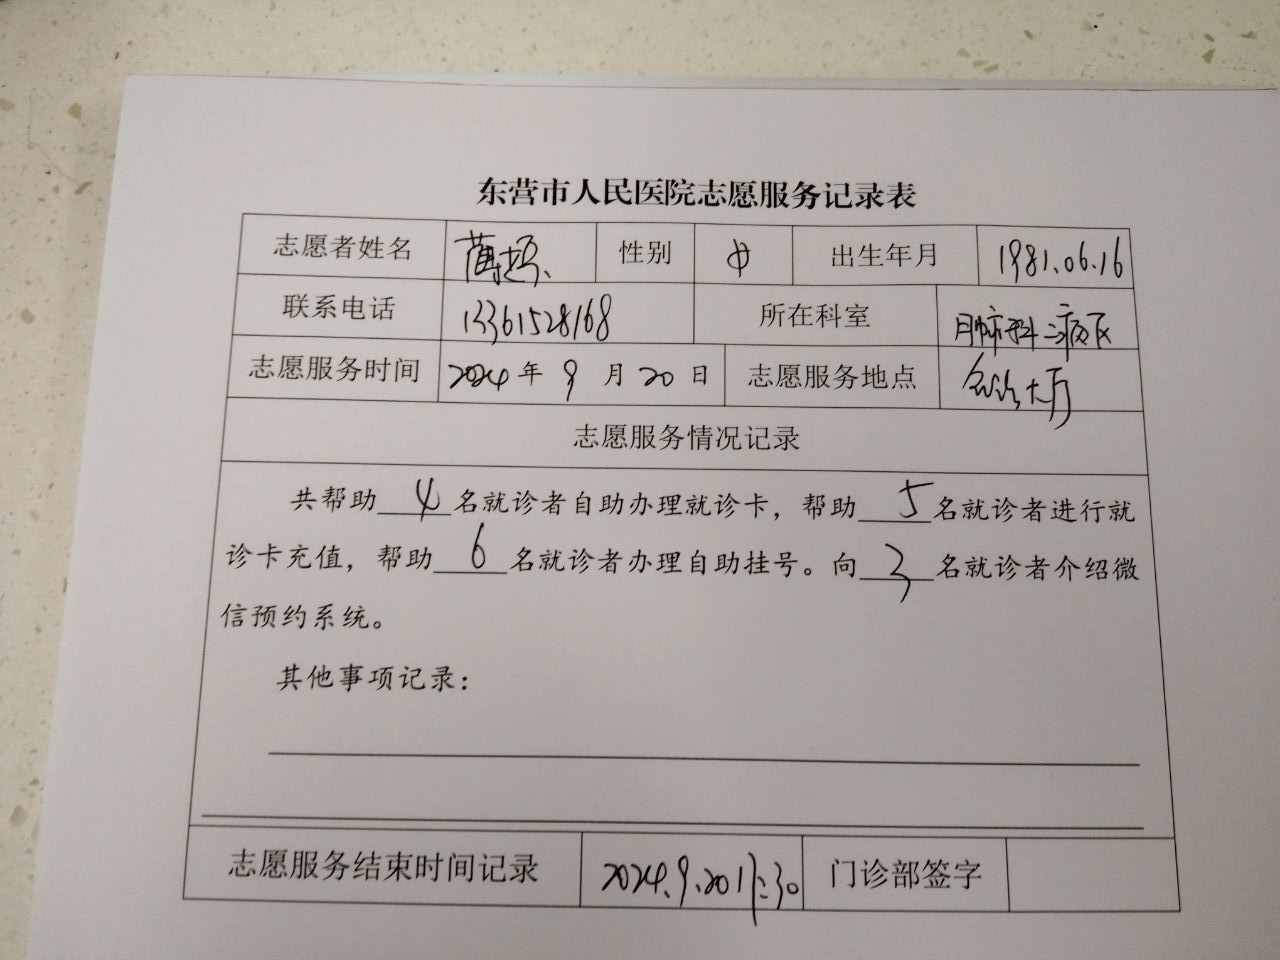 东营市人民医院志愿服务记录表
志愿者姓名 性别 女 出生年月 1981.06.16
联系电话 13361528168 所在科室 肿瘤科二病区
志愿服务时间 2024年9月20日 志愿服务地点 大厅
志愿服务情况记录
共帮助4名就诊者自助办理就诊卡，帮助5名就诊者进行就
诊卡充值，帮助6名就诊者办理自助挂号。向3名就诊者介绍微
信预约系统。
其他事项记录：
志愿服务结束时间记录 2024.9.20 :30 门诊部签字